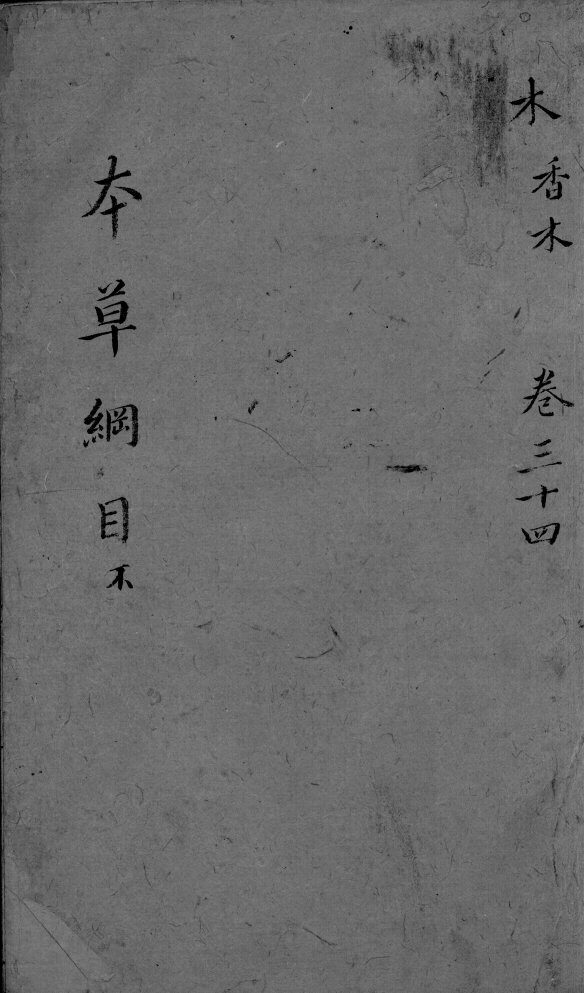 木
香木
卷三十四
本草綱目 不